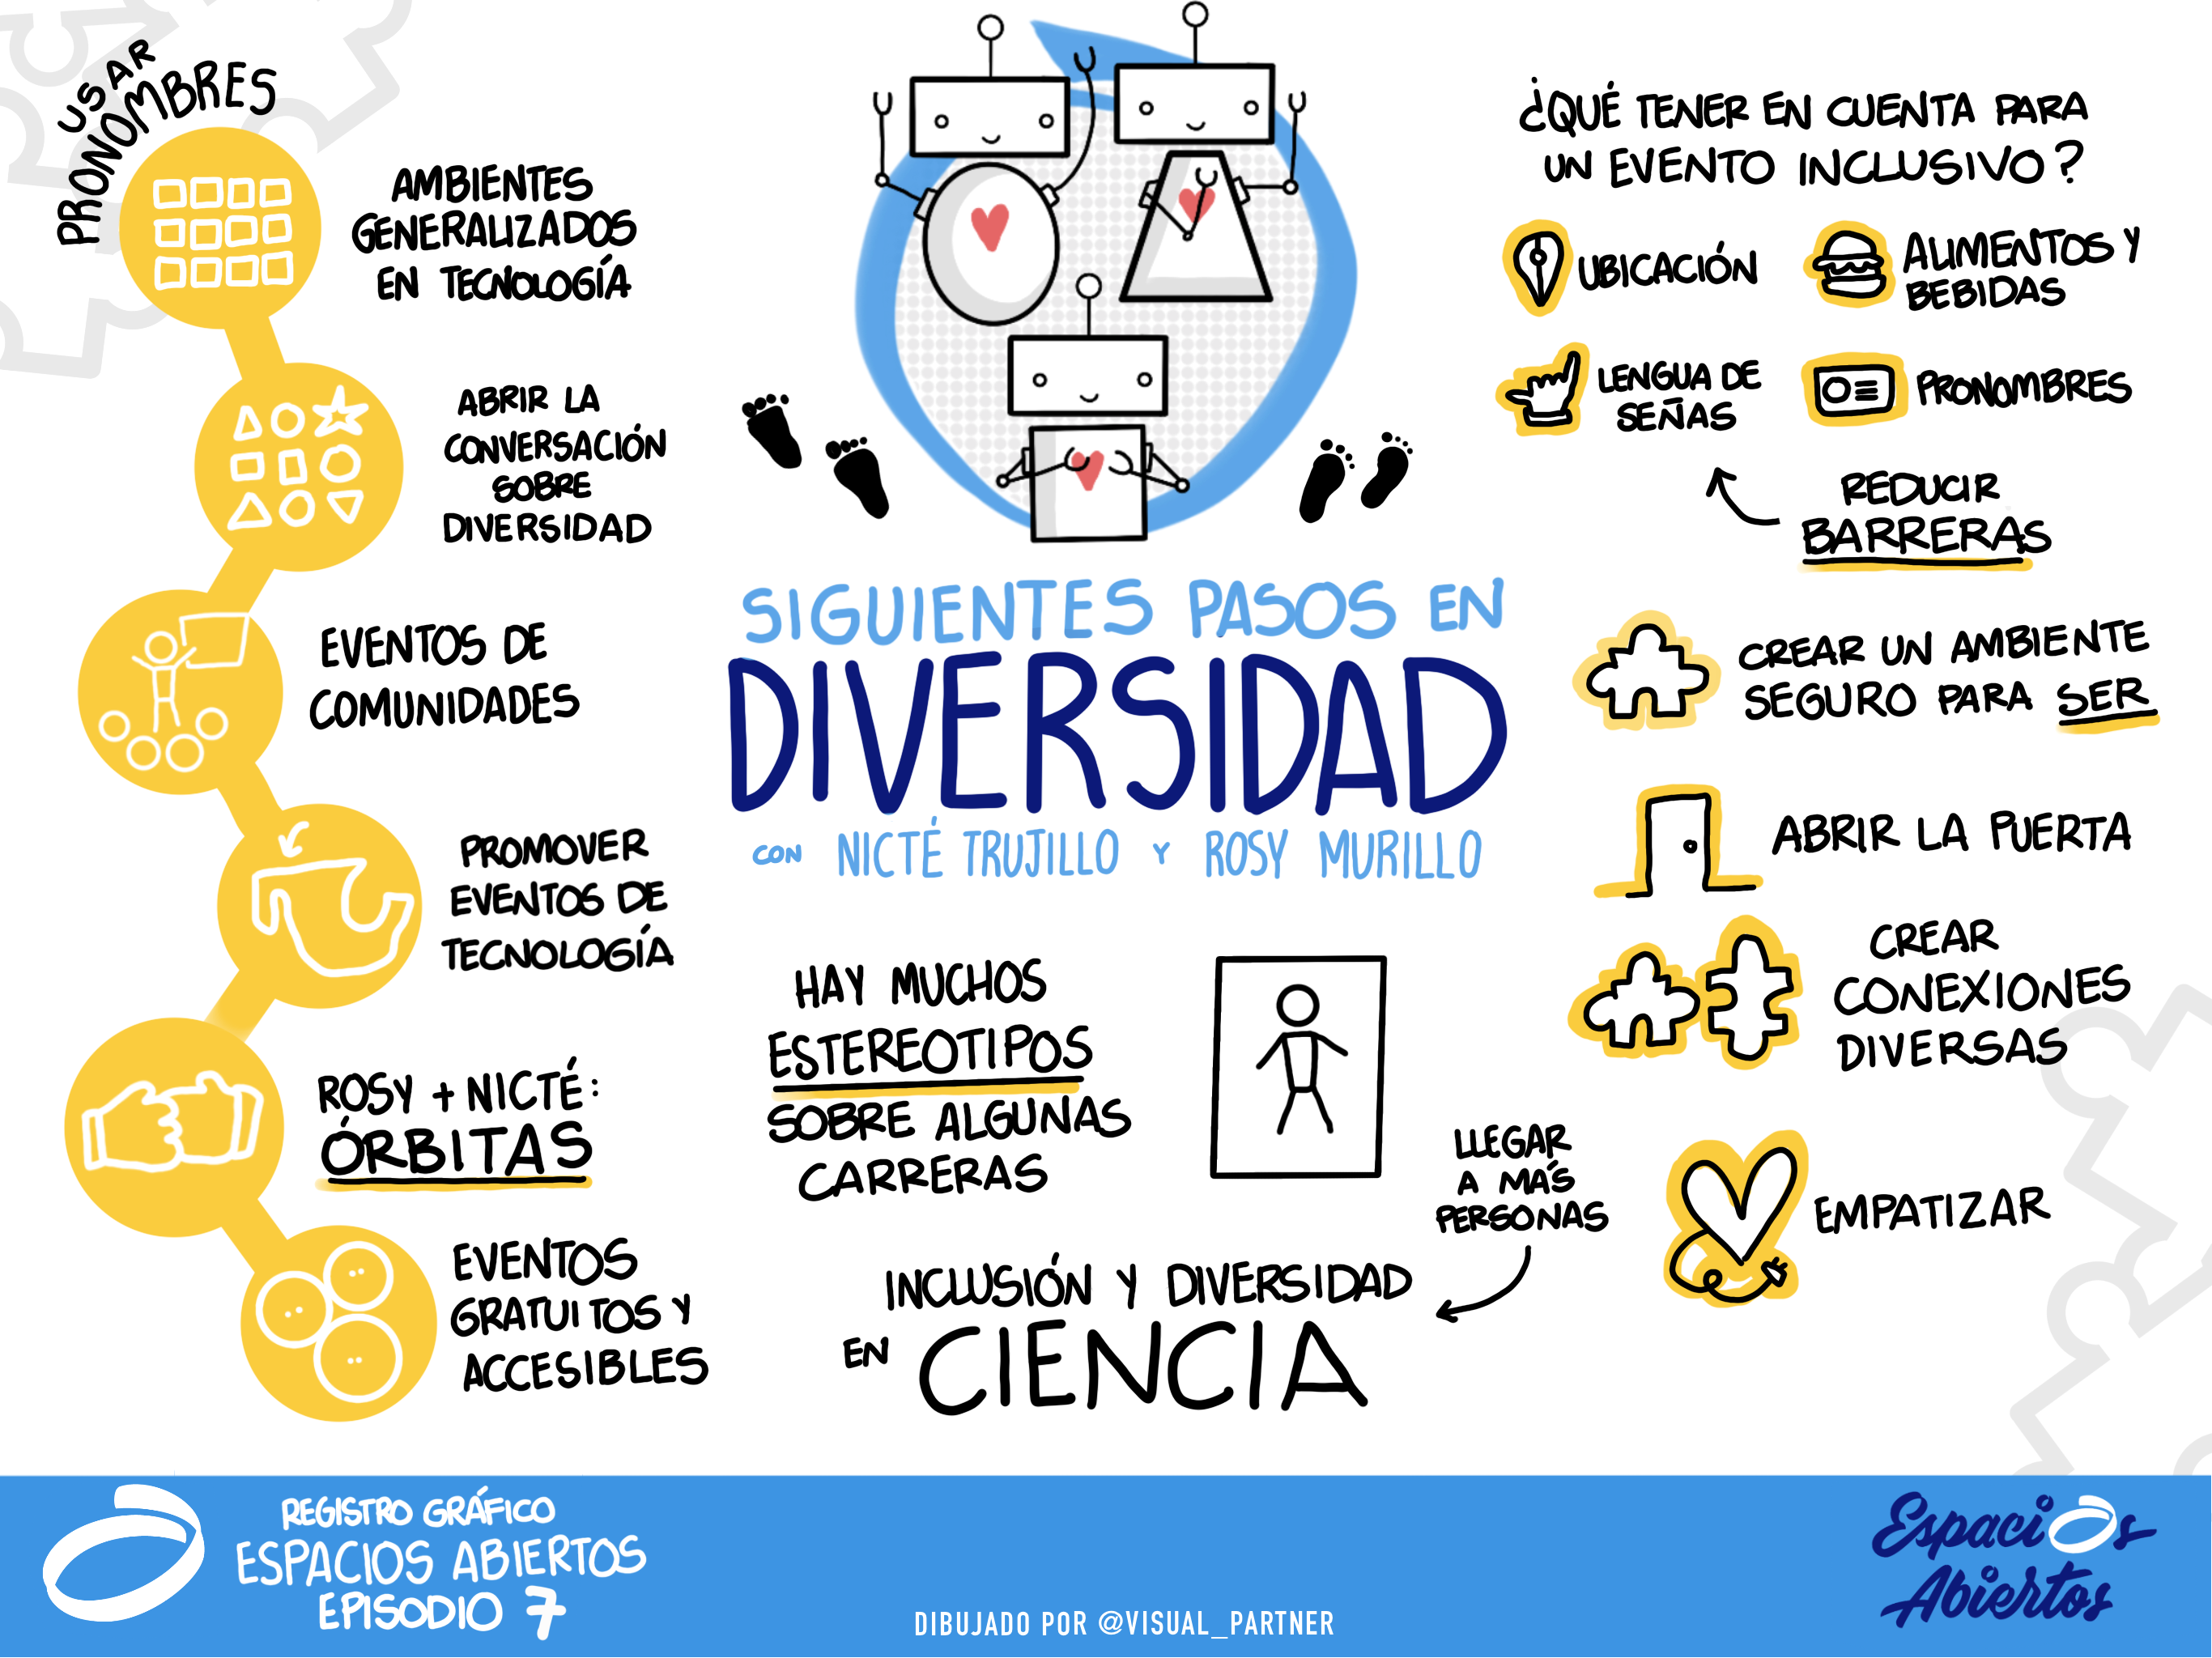 USAR
PRONOMBRES
AMBIENTES
GENERALIZADOS
EN TECNOLOGÍA
ABRIR LA
CONVERSACIÓN
SOBRE
DIVERSIDAD
EVENTOS DE
COMUNIDADES
PROMOVER
EVENTOS DE
TECNOLOGÍA
ROSY + NICTÉ:
ÓRBITAS
EVENTOS
GRATUITOS Y
ACCESIBLES
SIGUIENTES PASOS EN
DIVERSIDAD
CON NICTÉ TRUJILLO Y ROSY MURILLO
HAY MUCHOS
ESTEREOTIPOS
SOBRE ALGUNAS
CARRERAS
INCLUSIÓN Y DIVERSIDAD
EN CIENCIA
LLEGAR
A MÁS
PERSONAS
¿QUÉ TENER EN CUENTA PARA
UN EVENTO INCLUSIVO?
UBICACIÓN
ALIMENTOS Y
BEBIDAS
LENGUA DE
SEÑAS
PRONOMBRES
REDUCIR
BARRERAS
CREAR UN AMBIENTE
SEGURO PARA SER
ABRIR LA PUERTA
CREAR
CONEXIONES
DIVERSAS
EMPATIZAR
REGISTRO GRÁFICO
ESPACIOS ABIERTOS
EPISODIO 7
DIBUJADO POR @VISUAL_PARTNER
Espacios
Abiertos